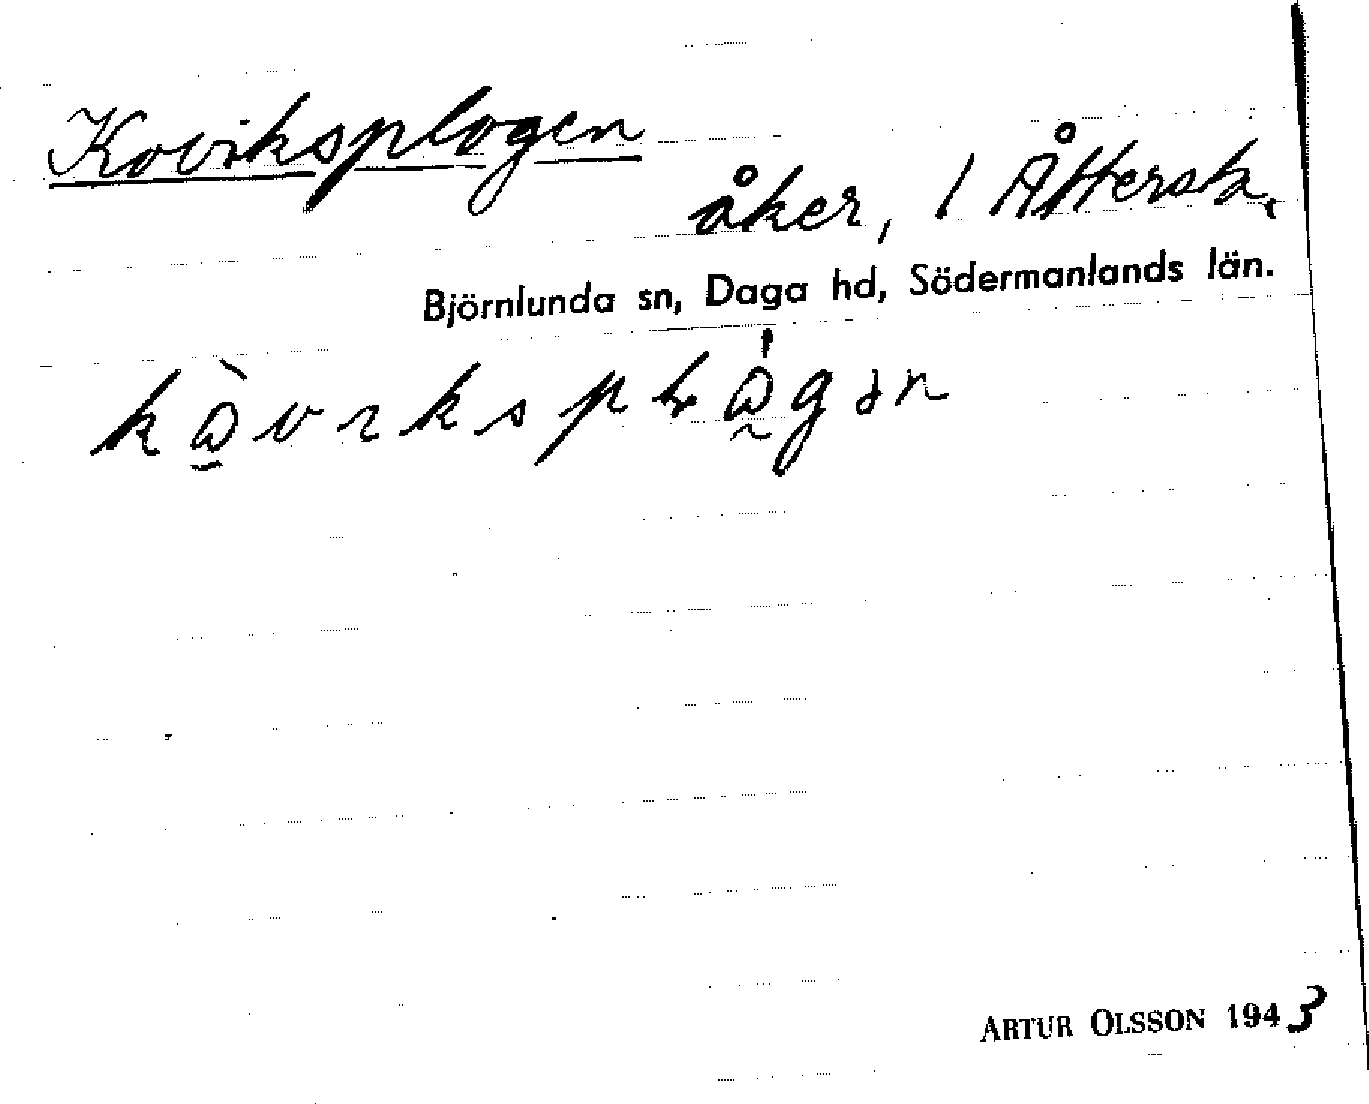 Koviksplogen
åker, 1 Åttersta.
Björnlunda sn, Daga hd, Södermanlands län.
ARTUR OLSSON 1943